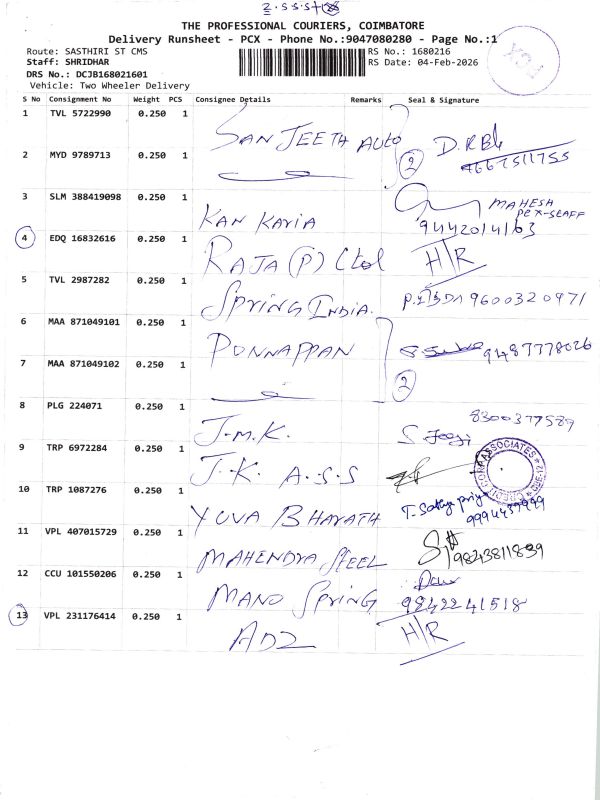 2.S.S.S+
THE PROFESSIONAL COURIERS, COIMBATORE
Delivery Runsheet - PCX - Phone No.:9047080280 - Page No.:1
Route: SASTHIRI ST CMS
RS No.: 1680216
Staff: SHRIDHAR
RS Date: 04-Feb-2026
DRS No.: DCJB168021601
Vehicle: Two Wheeler Delivery
PCX
S No Consignment No Weight PCS Consignee Details Remarks Seal & Signature
1 TVL 5722990 0.250 1 SANJEETH AUTO D.RBk
2 MYD 9789713 0.250 1 2 4667511755
3 SLM 388419098 0.250 1 KAN KARIA MAHESH PCX-STAFF 9442014163
4 EDQ 16832616 0.250 1 RAJA (P) Ltd H/R
5 TVL 2987282 0.250 1 SPRING INDIA. 9600320971
6 MAA 871049101 0.250 1 PONNAPPAN 9487778026
7 MAA 871049102 0.250 1 2
8 PLG 224071 0.250 1 J.M.K. 8300377589
9 TRP 6972284 0.250 1 J.K. A.S.S ASSOCIATES
10 TRP 1087276 0.250 1 YUVA BHARATH T. Sathya priya 9994437999
11 VPL 407015729 0.250 1 MAHENDRA STEEL 9843811839
12 CCU 101550206 0.250 1 MANO SPRING 9842241518
13 VPL 231176414 0.250 1 ADZ H/R